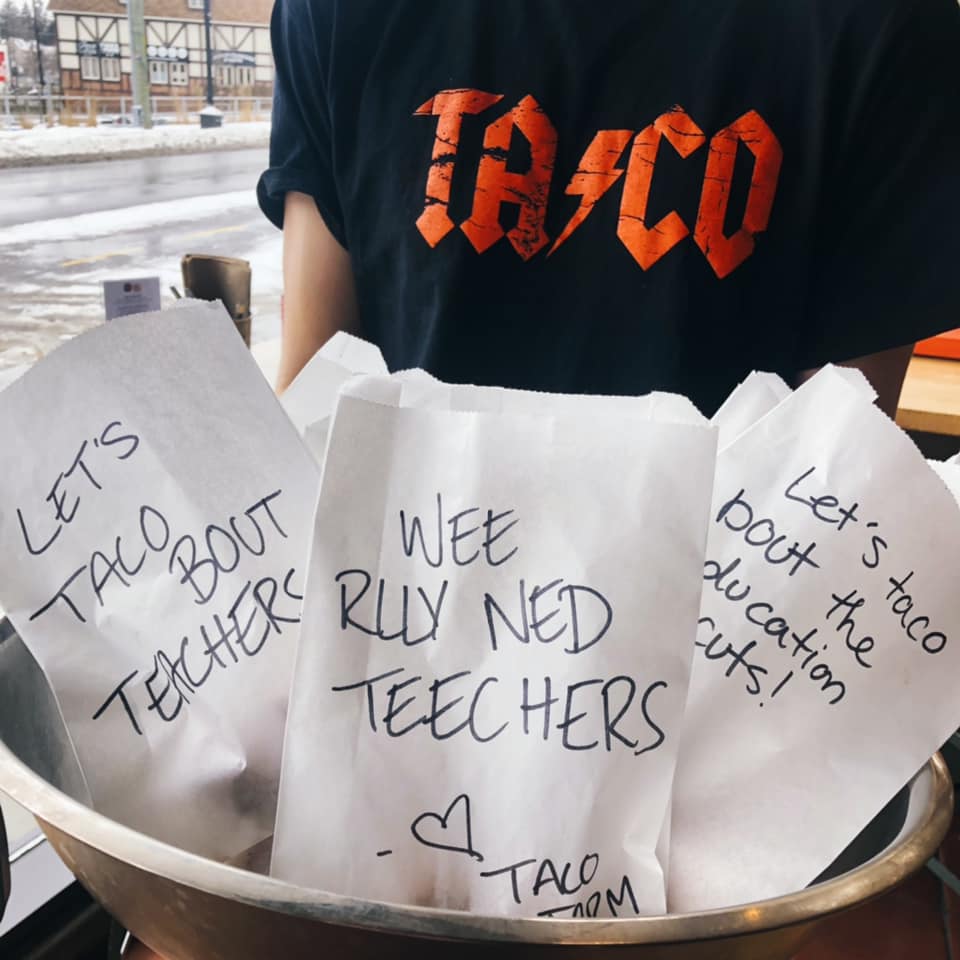 TA⚡CO
LET'S
TACO
BOUT
TEACHERS
WEE
RLLY NED
TEECHERS
- ♡ TACO
FARM
Let's taco
bout the
ducation
cuts!